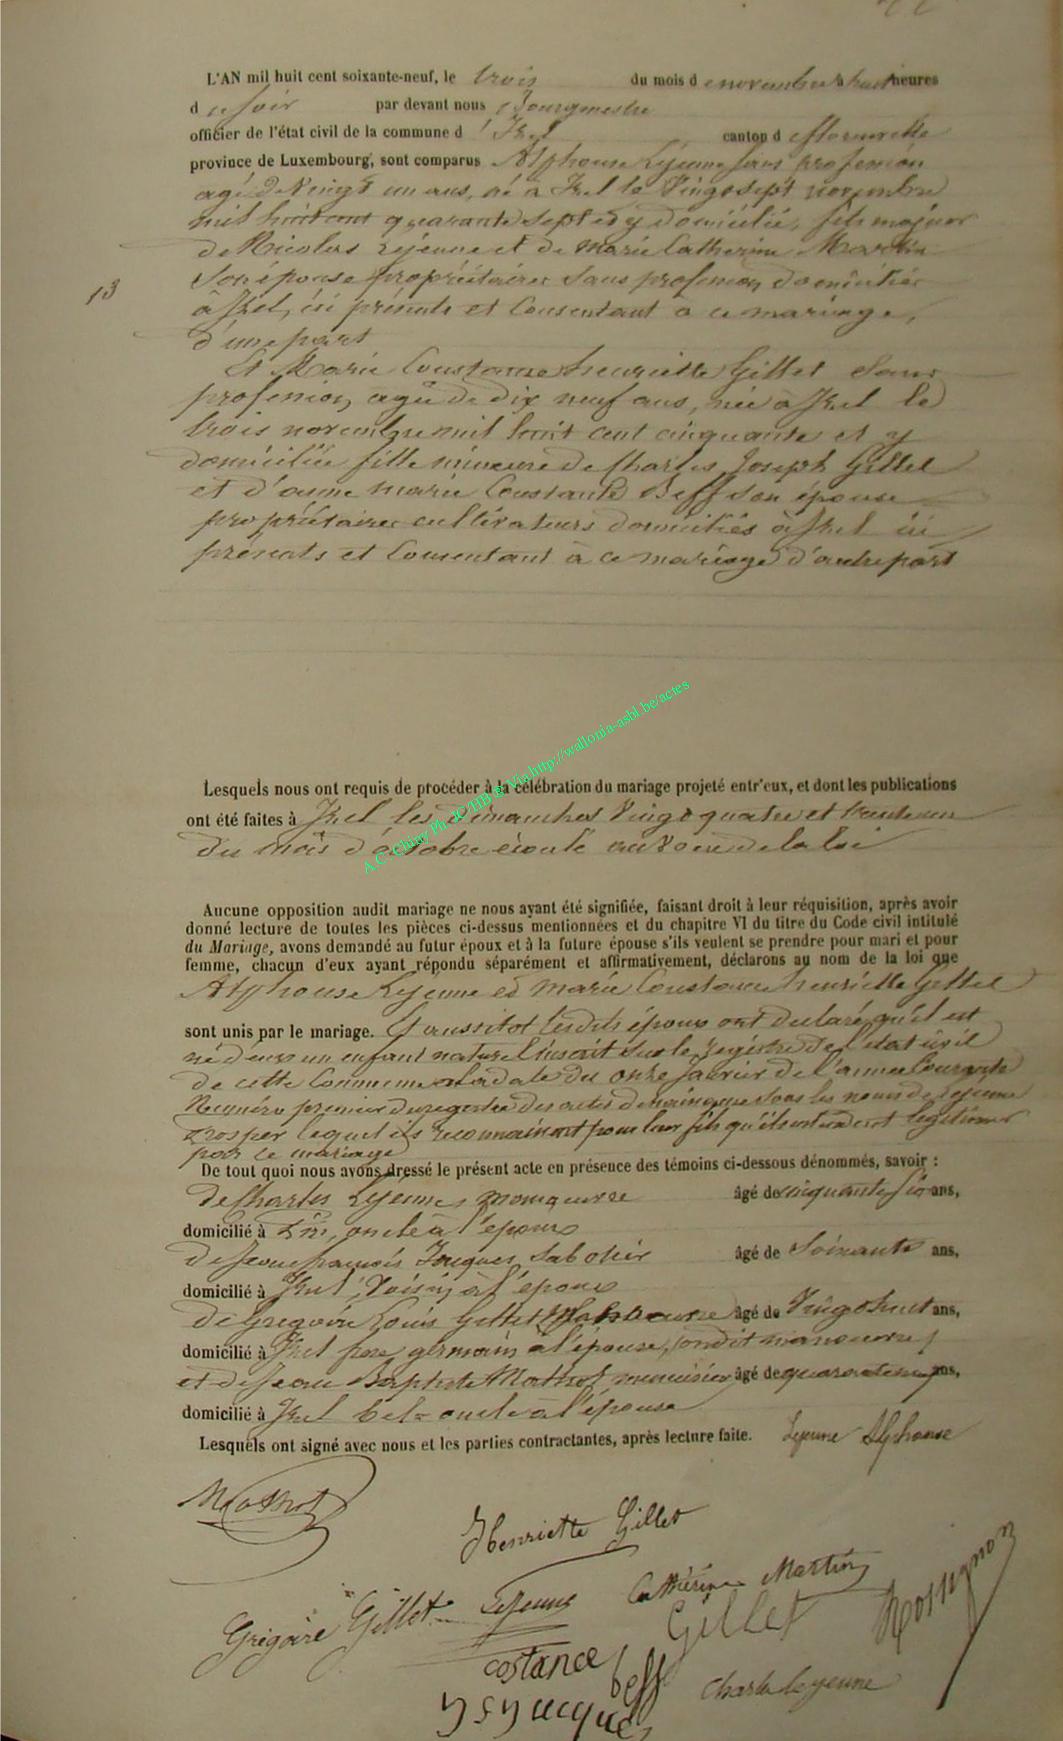 L'AN mil huit cent soixante-neuf, le trois du mois d e novembre à huit heures
d u soir par devant nous Bourgmestre
officier de l'état civil de la commune d ' Izel canton d e florenville
province de Luxembourg, sont comparus Alphonse Lejeune sans profession
agé de Vingt un ans, né à Izel le Vingt sept novembre
mil huit cent quarante sept et y domicilié, fils majeur
de Nicolas Lejeune et de marie Catherine Martin
son épouse propriétaires sans profession domiciliés
à Izel, ici présents et Consentant à ce mariage,
d'une part
13
Et Marie Constance henriette Gillet sans
profession, agée de dix neuf ans, née à Izel le
trois novembre mil huit cent cinquante et y
domiciliée fille mineure de Charles Joseph Gillet
et d'anne marie Constance Beff son épouse
propriétaires cultivateurs domiciliés à Izel ici
présents et Consentant à ce mariage d'autre part
Lesquels nous ont requis de procéder à la célébration du mariage projeté entr'eux, et dont les publications
ont été faites à Izel les dimanches Vingt quatre et trente un
du mois d'octobre écoulé au Voeu de la loi
A.C. Chiny Ph. JC/HB & Via http://wallonia-asbl.be/actes
Aucune opposition audit mariage ne nous ayant été signifiée, faisant droit à leur réquisition, après avoir
donné lecture de toutes les pièces ci-dessus mentionnées et du chapitre VI du titre du Code civil intitulé
du Mariage, avons demandé au futur époux et à la future épouse s'ils veulent se prendre pour mari et pour
femme, chacun d'eux ayant répondu séparément et affirmativement, déclarons au nom de la loi que
Alphonse Lejeune et Marie Constance henriette Gillet
sont unis par le mariage. Et aussitot lesdits époux ont declaré qu'il est
né d'eux un enfant naturel inscrit sur le registre de l'état civil
de cette Commune à la date du onze Janvier de l'année Courante
Numéro premier du registre des actes de naissance sous les noms de Lejeune
Prosper lequel ils reconnaissent pour leur fils qu'ils entendent légitimer
par ce mariage
De tout quoi nous avons dressé le présent acte en présence des témoins ci-dessous dénommés, savoir :
de Charles Lejeune manoeuvre âgé de cinquante six ans,
domicilié à oncle à l'époux
de Jean françois Jacques Sabotier âgé de Soixante ans,
domicilié à Izel, Voisin à l'époux
de Grégoire Louis Gillet Manoeuvre âgé de Vingt huit ans,
domicilié à Izel frère germain à l'épouse, manoeuvre
et de Jean Baptiste Mathot menuisier âgé de quarante ans,
domicilié à Izel bel oncle à l'épouse
Lesquels ont signé avec nous et les parties contractantes, après lecture faite. Lejeune Alphonse
Mathot
Henriette Gillet
Grégoire Gillet Lejeune Cathérine Martin Rossignon
Gillet
costance beff Charle lejeune
Jacques